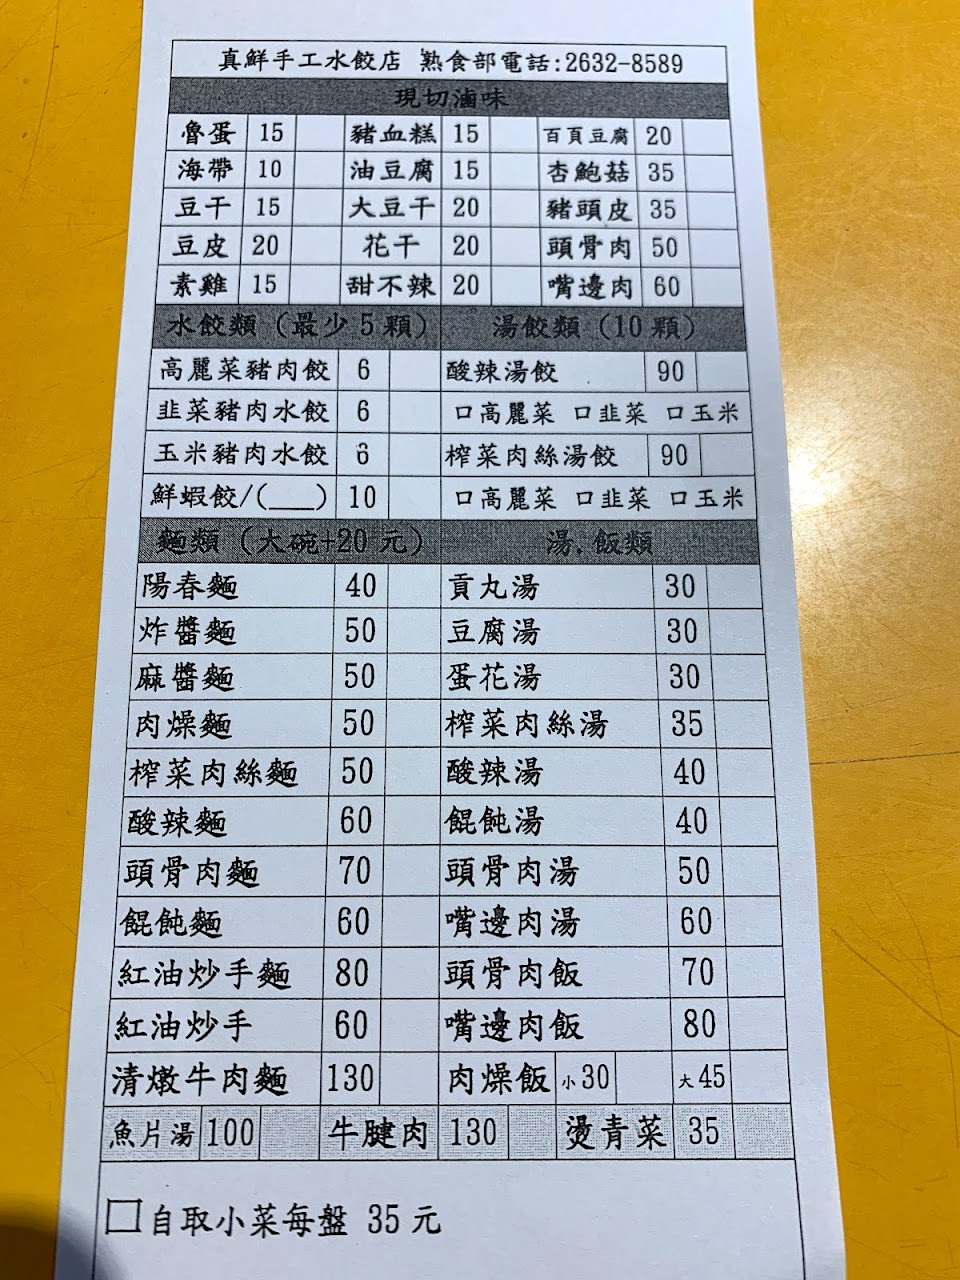 真鮮手工水餃店 熟食部電話:2632-8589
現切滷味
魯蛋 15 豬血糕 15 百頁豆腐 20
海帶 10 油豆腐 15 杏鮑菇 35
豆干 15 大豆干 20 豬頭皮 35
豆皮 20 花干 20 頭骨肉 50
素雞 15 甜不辣 20 嘴邊肉 60
水餃類(最少5顆) 湯餃類(10顆)
高麗菜豬肉餃 6 酸辣湯餃 90
韭菜豬肉水餃 6 口高麗菜 口韭菜 口玉米
玉米豬肉水餃 6 榨菜肉絲湯餃 90
鮮蝦餃/(___) 10 口高麗菜 口韭菜 口玉米
麵類(大碗+20元) 湯.飯類
陽春麵 40 貢丸湯 30
炸醬麵 50 豆腐湯 30
麻醬麵 50 蛋花湯 30
肉燥麵 50 榨菜肉絲湯 35
榨菜肉絲麵 50 酸辣湯 40
酸辣麵 60 餛飩湯 40
頭骨肉麵 70 頭骨肉湯 50
餛飩麵 60 嘴邊肉湯 60
紅油炒手麵 80 頭骨肉飯 70
紅油炒手 60 嘴邊肉飯 80
清燉牛肉麵 130 肉燥飯 小30 大45
魚片湯 100 牛腱肉 130 燙青菜 35
□自取小菜每盤 35元